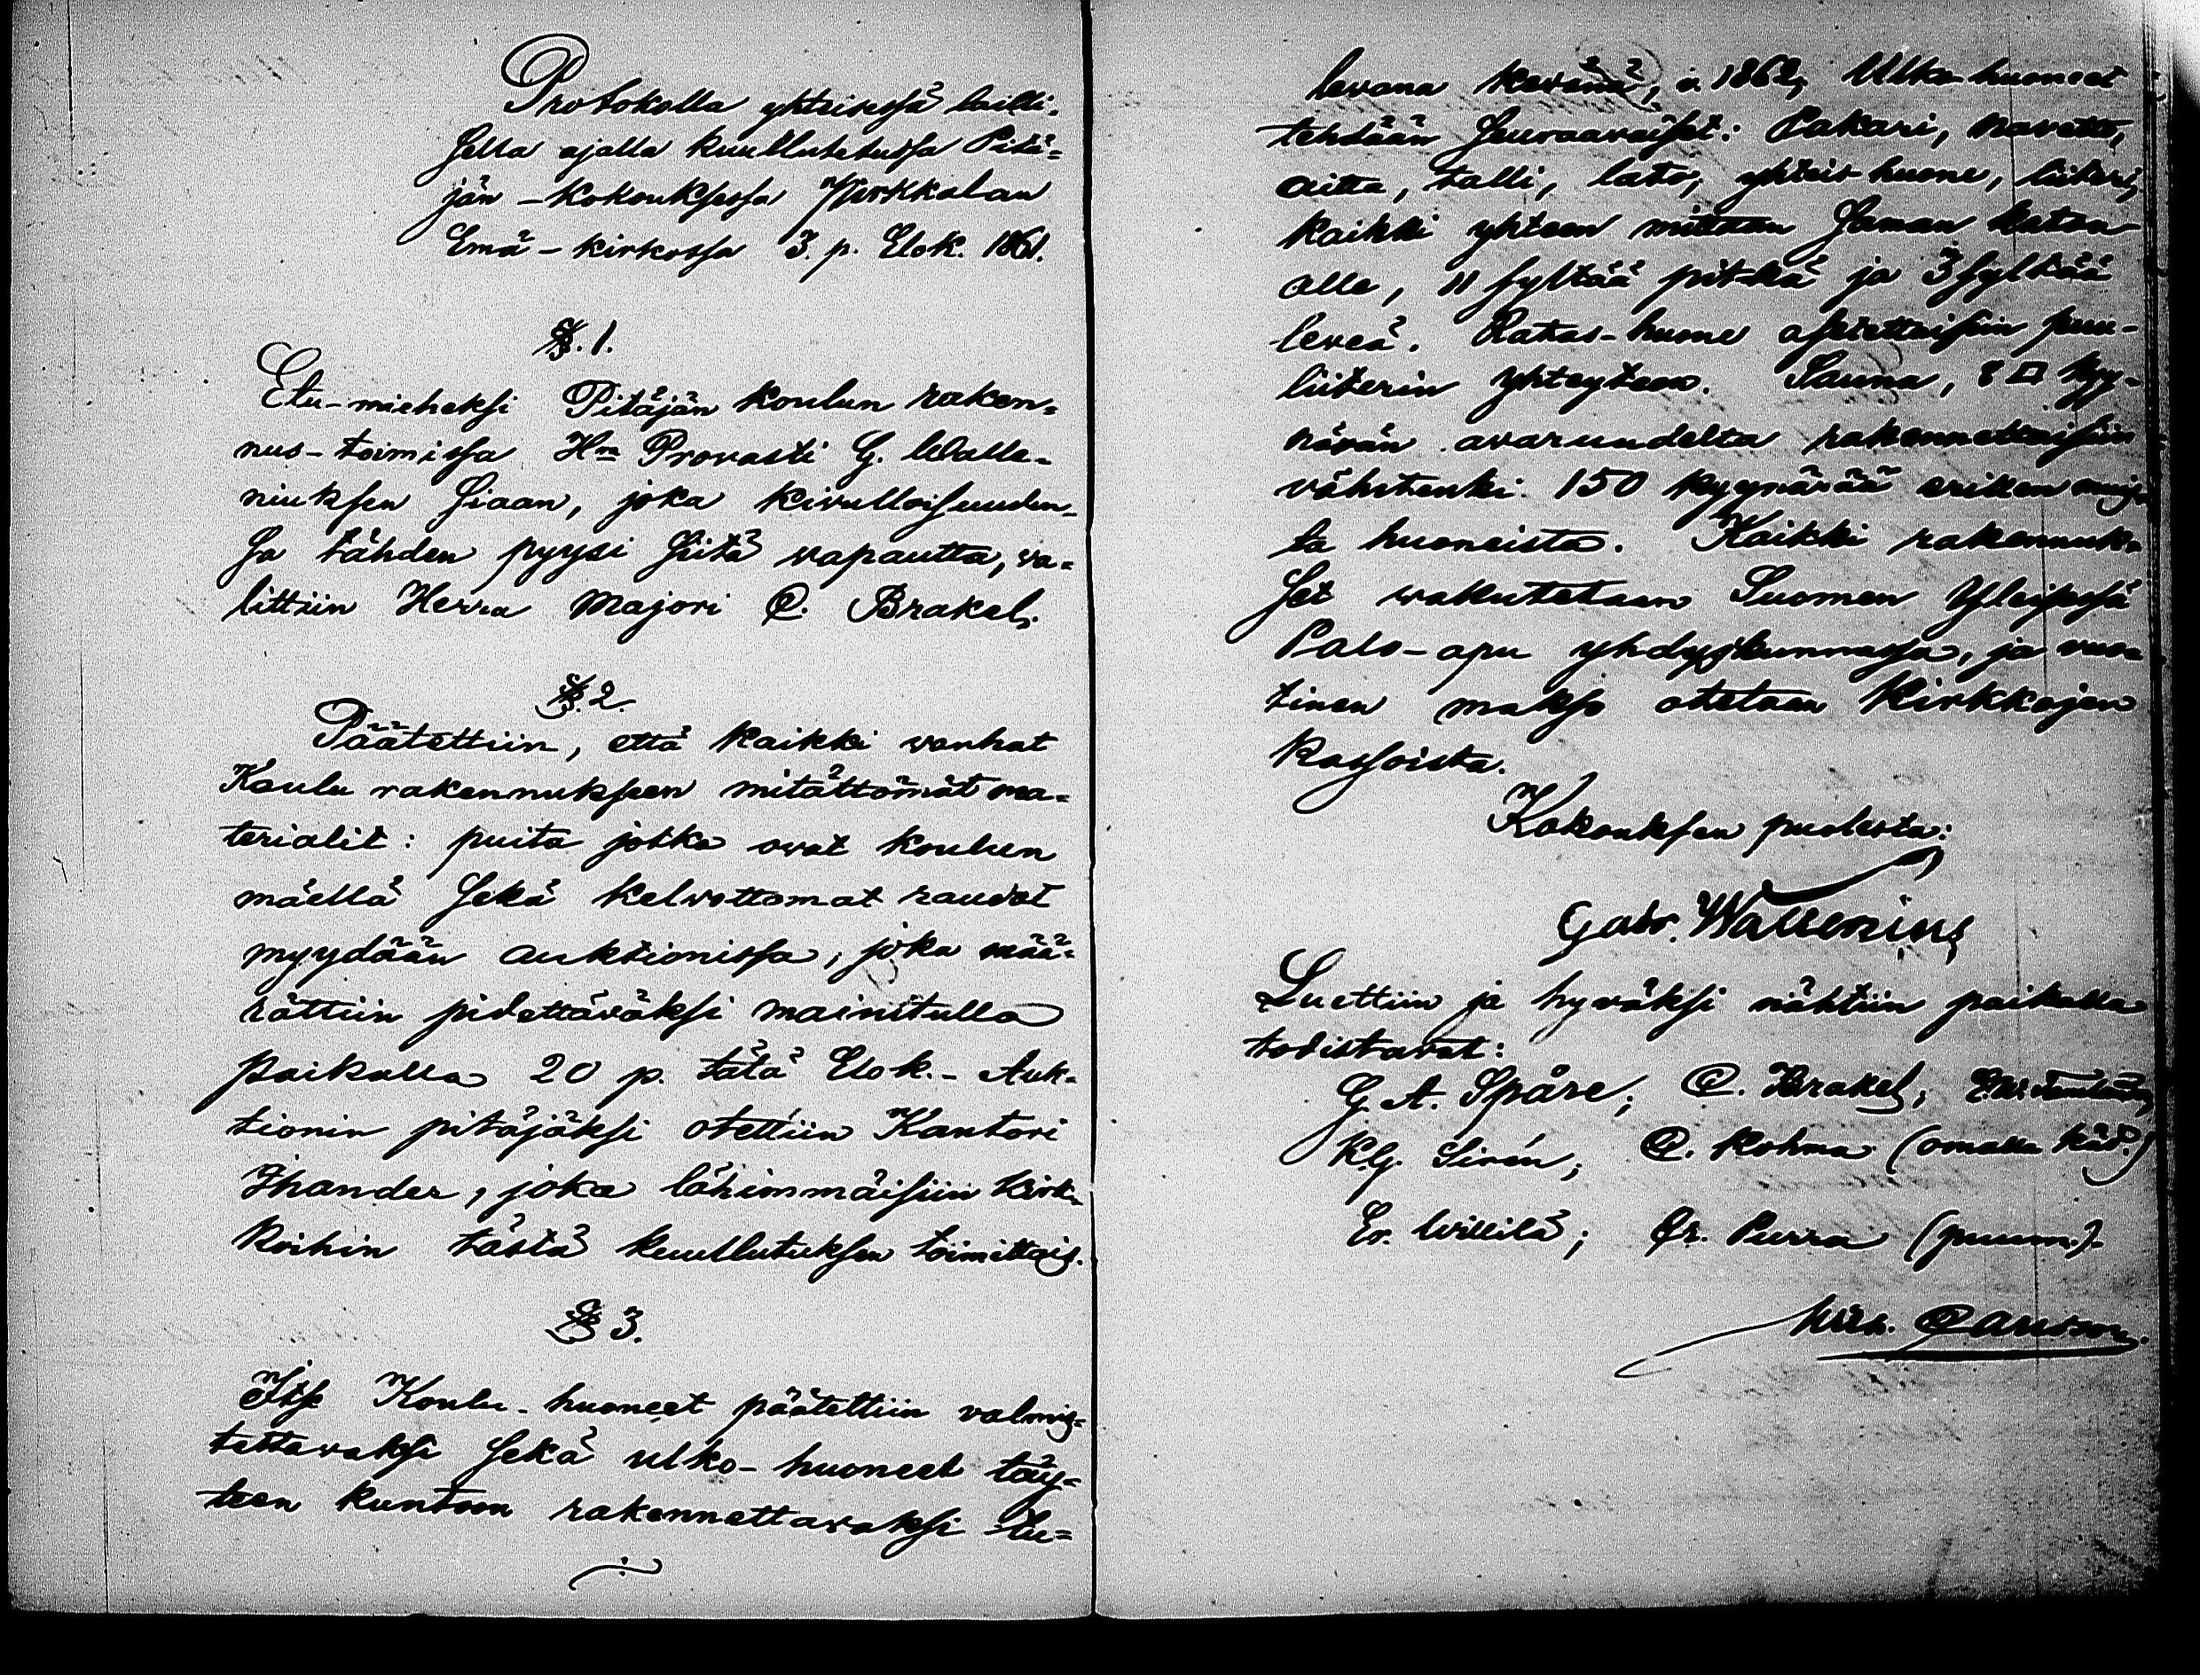 Protokolla yhteisessä lailli-
sella ajalla kuullutetussa Pitä=
jän-kokouksessa Pyhrkkalan
Emä-kirkossa 3. p. Elok. 1861.
§. 1.
Etu-mieheksi Pitäjän koulun raken=
nus-toimissa Hrn Provasti G. Walle-
niuksen siaan, joka kivulloisuuden-
sa tähden pyysi siitä vapautta, va=
littiin Herra Majori C. Brakel.
§. 2.
Päätettiin, että kaikki vanhat
Koulu rakennuksen mitättömät ma=
terialit: puita jotka ovat koulun
mäellä sekä kelvottomat raudat
myydään auktionissa, joka mää=
rättiin pidettäväksi mainitulla
paikalla 20 p. tätä Elok.- Auk=
tionin pitäjäksi otettiin Kantori
Ihander, joka lähimmäisiin kirk=
koihin tästä kuullutuksen toimittais.
§ 3.
Itse Koulu-huoneet päätettiin valmis=
tettavaksi sekä ulko-huoneet täy=
teen kuntoon rakennettavaksi tu=
levana kevänä, v. 1862, Ulko-huoneet
tehdään seuraavaiset: Pakari, navetta,
aitta, talli, lato, yhteis-huone, liiteri,
kaikki yhteen mittaan saman katon
alle, 11 syltää pitkä ja 3 syltää
leveä. Ratas-huone asetettaisiin puu-
liiterin yhteyteen. Sauna, 8 □ kyy-
närän avaruudelta rakennettaisiin
vähintenki 150 kyynärää eriken muis-
ta huoneista. Kaikki rakennuk-
set wakutetaan Suomen Yleisessä
Palo-apu yhdyskunnassa, ja vuo-
tinen makso otetaan Kirkkojen
kassoista.
Kokouksen puolesta:
Gabr. Wallenius
Luettiin ja hyväksi nähtiin paikalla
todistavat:
G. A. Spåre; C. Brakel;
K.G. Sirén; C. Kohma (omalla käd.)
Er. Willilä; Er. Purra (puum.).